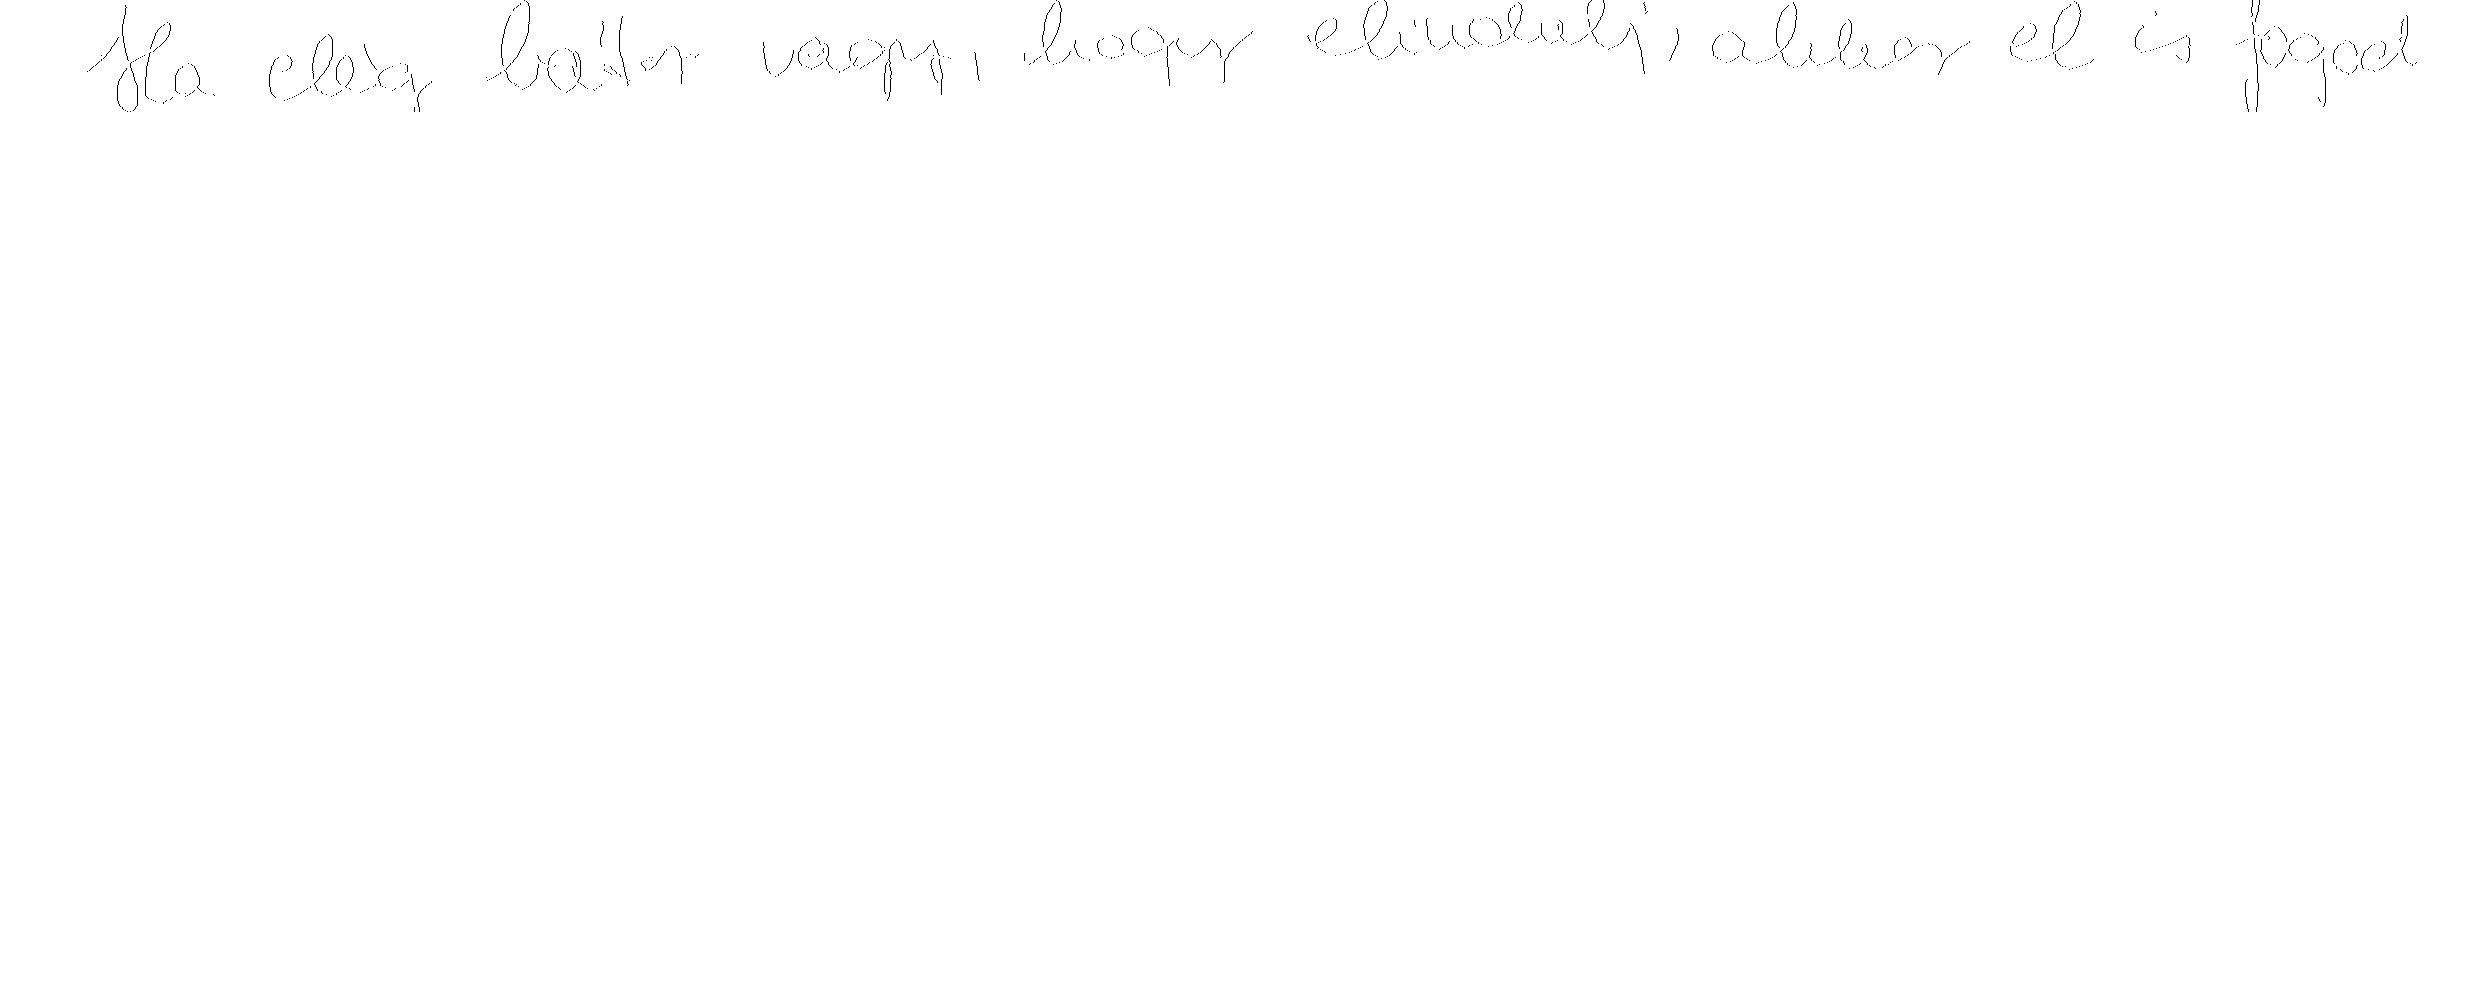 Ha elég bátor vagy, hogy elindulj, akkor el is fogod